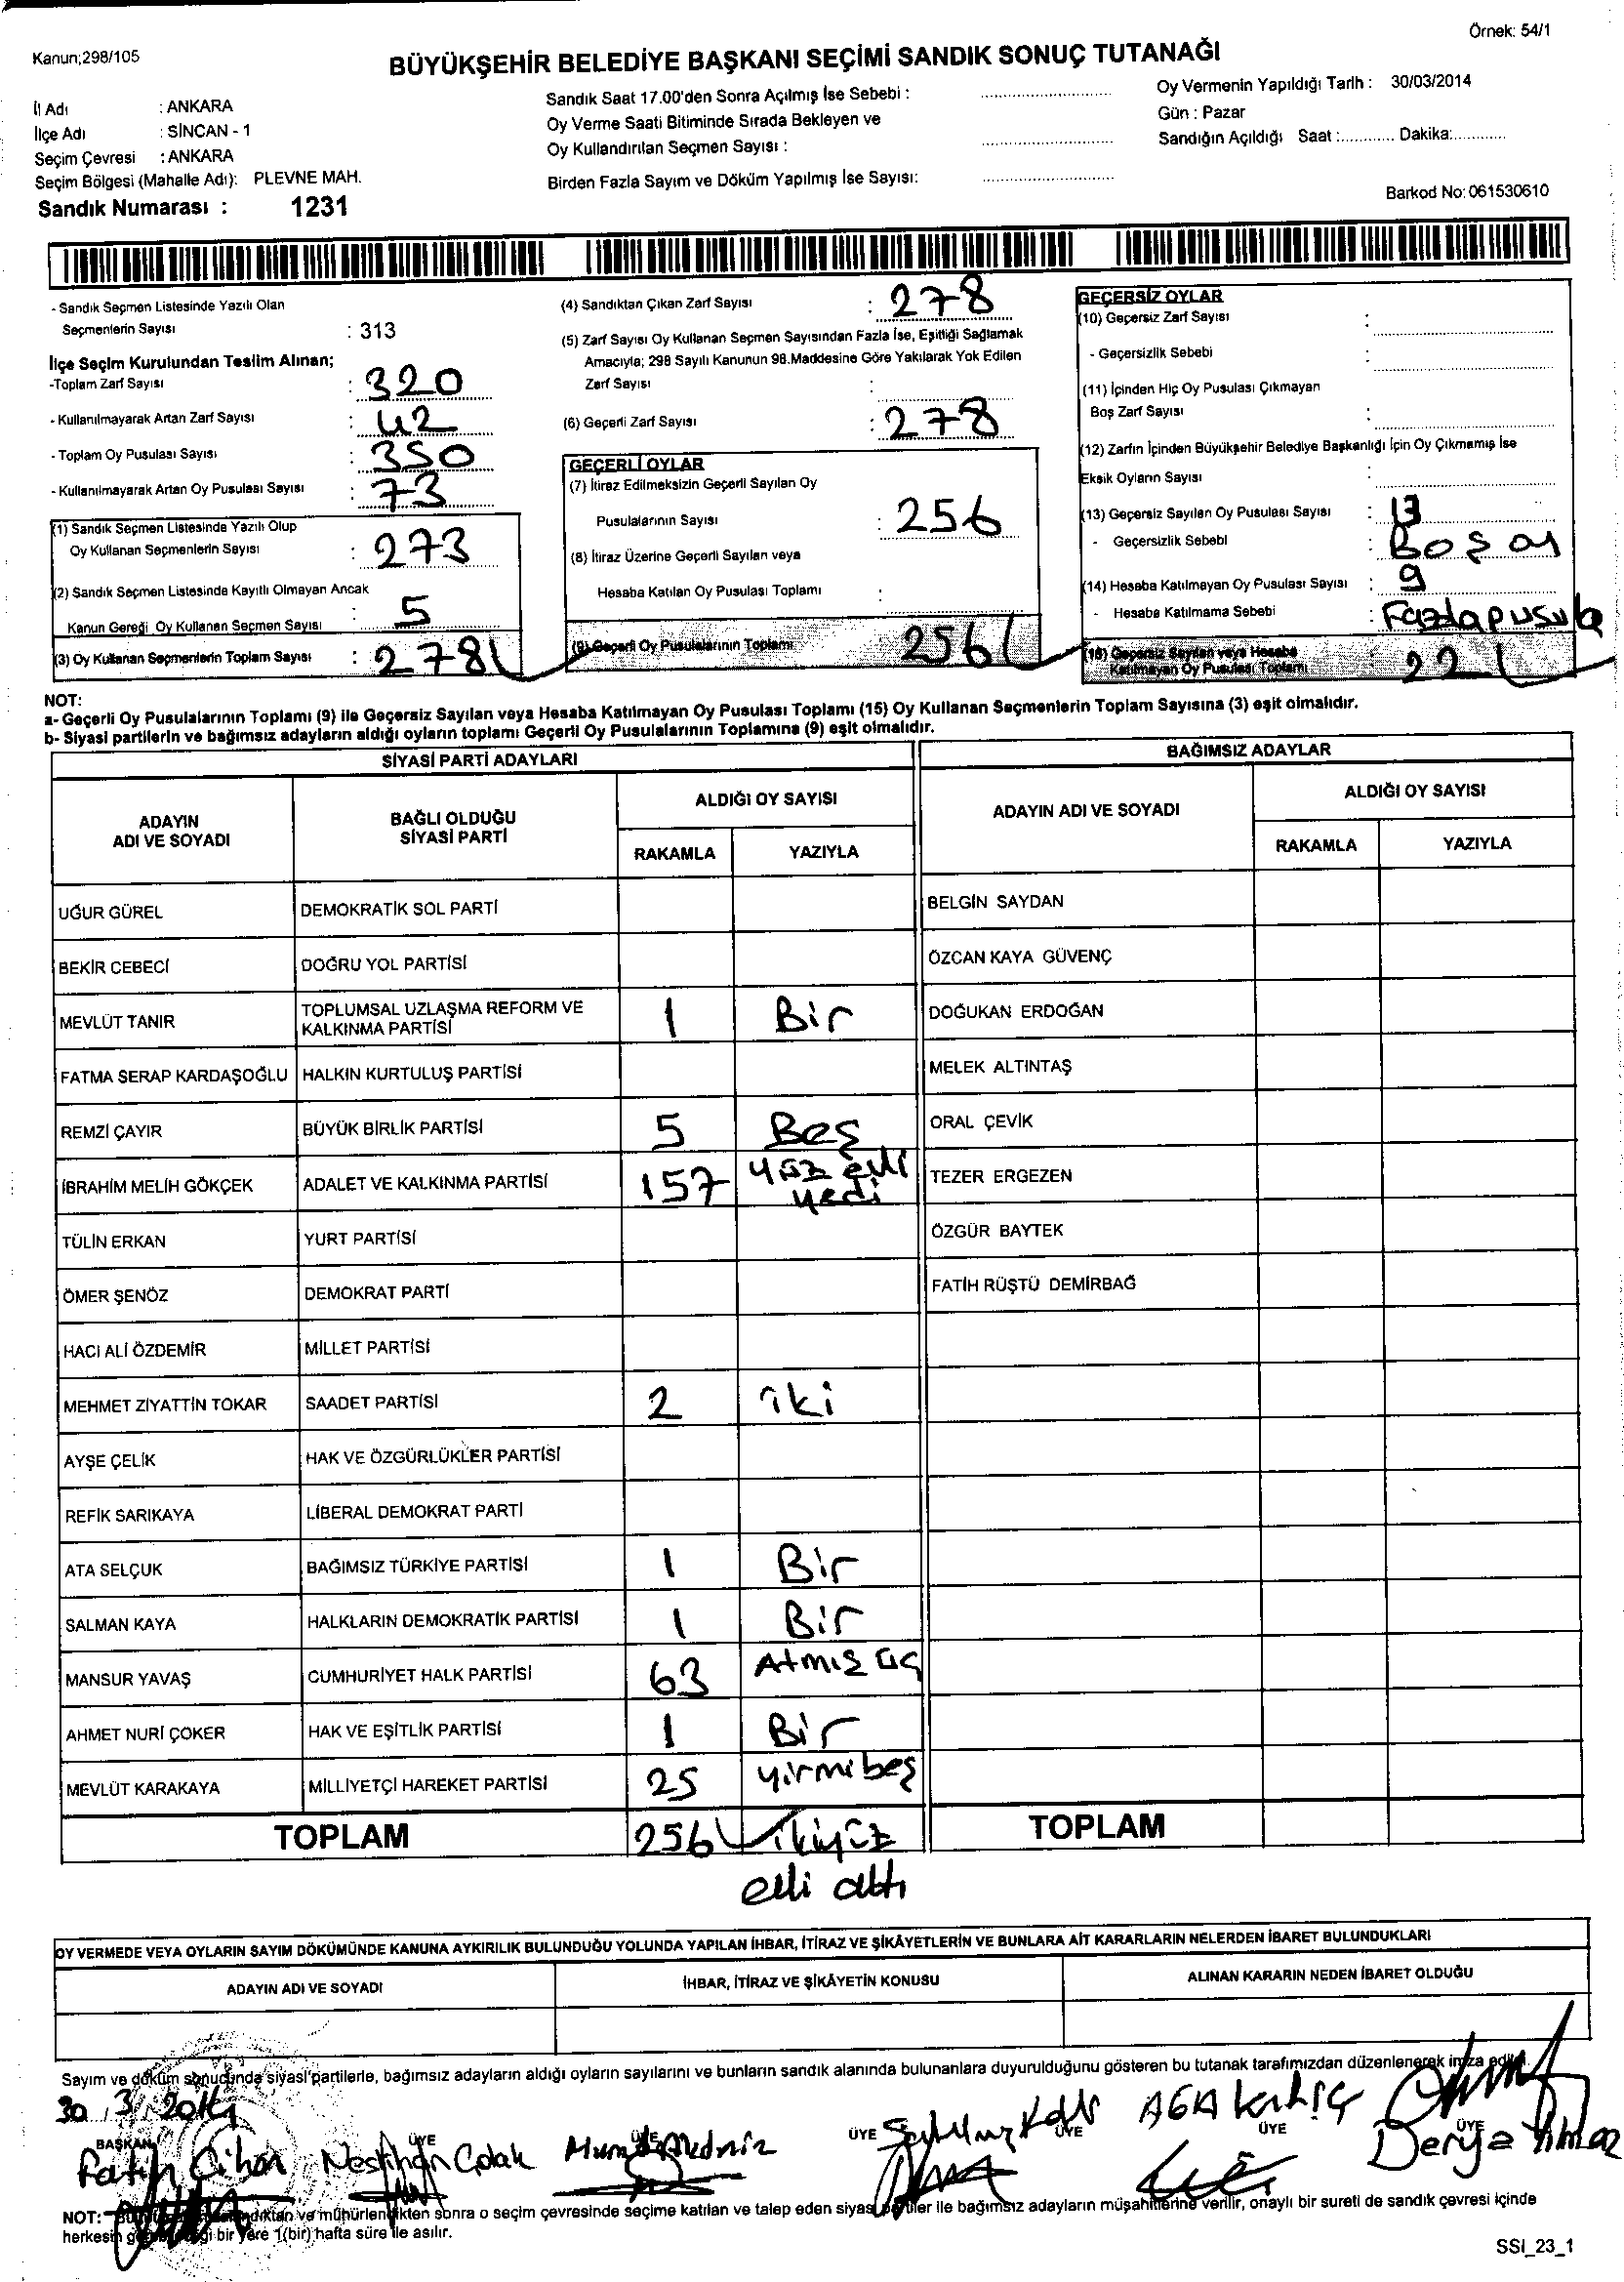 Örnek: 54/1
Kanun;298/105
BÜYÜKŞEHİR BELEDİYE BAŞKANI SEÇİMİ SANDIK SONUÇ TUTANAĞI
İl Adı : ANKARA
İlçe Adı : SİNCAN - 1
Seçim Çevresi : ANKARA
Seçim Bölgesi (Mahalle Adı): PLEVNE MAH.
Sandık Numarası : 1231
Sandık Saat 17.00'den Sonra Açılmış İse Sebebi :
Oy Verme Saati Bitiminde Sırada Bekleyen ve
Oy Kullandırılan Seçmen Sayısı :
Birden Fazla Sayım ve Döküm Yapılmış İse Sayısı:
Oy Vermenin Yapıldığı Tarih : 30/03/2014
Gün : Pazar
Sandığın Açıldığı Saat :............ Dakika:............
Barkod No: 061530610
- Sandık Seçmen Listesinde Yazılı Olan
Seçmenlerin Sayısı : 313
İlçe Seçim Kurulundan Teslim Alınan;
-Toplam Zarf Sayısı : 320
- Kullanılmayarak Artan Zarf Sayısı : 42
- Toplam Oy Pusulası Sayısı : 350
- Kullanılmayarak Artan Oy Pusulası Sayısı : 73
(1) Sandık Seçmen Listesinde Yazılı Olup
Oy Kullanan Seçmenlerin Sayısı : 273
(2) Sandık Seçmen Listesinde Kayıtlı Olmayan Ancak
Kanun Gereği Oy Kullanan Seçmen Sayısı : 5
(3) Oy Kullanan Seçmenlerin Toplam Sayısı : 278
(4) Sandıktan Çıkan Zarf Sayısı : 278
(5) Zarf Sayısı Oy Kullanan Seçmen Sayısından Fazla İse, Eşitliği Sağlamak
Amacıyla; 298 Sayılı Kanunun 98.Maddesine Göre Yakılarak Yok Edilen
Zarf Sayısı :
(6) Geçerli Zarf Sayısı : 278
GEÇERLİ OYLAR
(7) İtiraz Edilmeksizin Geçerli Sayılan Oy
Pusulalarının Sayısı : 256
(8) İtiraz Üzerine Geçerli Sayılan veya
Hesaba Katılan Oy Pusulası Toplamı :
(9) Geçerli Oy Pusulalarının Toplamı 256
GEÇERSİZ OYLAR
(10) Geçersiz Zarf Sayısı :
- Geçersizlik Sebebi :
(11) İçinden Hiç Oy Pusulası Çıkmayan
Boş Zarf Sayısı :
(12) Zarfın İçinden Büyükşehir Belediye Başkanlığı İçin Oy Çıkmamış İse
Eksik Oyların Sayısı :
(13) Geçersiz Sayılan Oy Pusulası Sayısı : 13
- Geçersizlik Sebebi : Boş oy
(14) Hesaba Katılmayan Oy Pusulası Sayısı : 9
- Hesaba Katılmama Sebebi : Fazla pusula
(15) Geçersiz Sayılan veya Hesaba
Katılmayan Oy Pusulası Toplamı 22
NOT:
a- Geçerli Oy Pusulalarının Toplamı (9) ile Geçersiz Sayılan veya Hesaba Katılmayan Oy Pusulası Toplamı (15) Oy Kullanan Seçmenlerin Toplam Sayısına (3) eşit olmalıdır.
b- Siyasi partilerin ve bağımsız adayların aldığı oyların toplamı Geçerli Oy Pusulalarının Toplamına (9) eşit olmalıdır.
SİYASİ PARTİ ADAYLARI
ADAYIN
ADI VE SOYADI
BAĞLI OLDUĞU
SİYASİ PARTİ
ALDIĞI OY SAYISI
RAKAMLA YAZIYLA
UĞUR GÜREL DEMOKRATİK SOL PARTİ
BEKİR CEBECİ DOĞRU YOL PARTİSİ
MEVLÜT TANIR TOPLUMSAL UZLAŞMA REFORM VE
KALKINMA PARTİSİ 1 Bir
FATMA SERAP KARDAŞOĞLU HALKIN KURTULUŞ PARTİSİ
REMZİ ÇAYIR BÜYÜK BİRLİK PARTİSİ 5 Beş
İBRAHİM MELİH GÖKÇEK ADALET VE KALKINMA PARTİSİ 157 yüz elli
yedi
TÜLİN ERKAN YURT PARTİSİ
ÖMER ŞENÖZ DEMOKRAT PARTİ
HACI ALİ ÖZDEMİR MİLLET PARTİSİ
MEHMET ZİYATTİN TOKAR SAADET PARTİSİ 2 iki
AYŞE ÇELİK HAK VE ÖZGÜRLÜKLER PARTİSİ
REFİK SARIKAYA LİBERAL DEMOKRAT PARTİ
ATA SELÇUK BAĞIMSIZ TÜRKİYE PARTİSİ 1 Bir
SALMAN KAYA HALKLARIN DEMOKRATİK PARTİSİ 1 Bir
MANSUR YAVAŞ CUMHURİYET HALK PARTİSİ 63 Atmış üç
AHMET NURİ ÇOKER HAK VE EŞİTLİK PARTİSİ 1 Bir
MEVLÜT KARAKAYA MİLLİYETÇİ HAREKET PARTİSİ 25 yirmibeş
TOPLAM 256 ikiyüz
elli altı
BAĞIMSIZ ADAYLAR
ADAYIN ADI VE SOYADI
ALDIĞI OY SAYISI
RAKAMLA YAZIYLA
BELGİN SAYDAN
ÖZCAN KAYA GÜVENÇ
DOĞUKAN ERDOĞAN
MELEK ALTINTAŞ
ORAL ÇEVİK
TEZER ERGEZEN
ÖZGÜR BAYTEK
FATİH RÜŞTÜ DEMİRBAĞ
TOPLAM
OY VERMEDE VEYA OYLARIN SAYIM DÖKÜMÜNDE KANUNA AYKIRILIK BULUNDUĞU YOLUNDA YAPILAN İHBAR, İTİRAZ VE ŞİKÂYETLERİN VE BUNLARA AİT KARARLARIN NELERDEN İBARET BULUNDUKLARI
ADAYIN ADI VE SOYADI İHBAR, İTİRAZ VE ŞİKÂYETİN KONUSU ALINAN KARARIN NEDEN İBARET OLDUĞU
Sayım ve döküm sonucunda siyasi partilerle, bağımsız adayların aldığı oyların sayılarını ve bunların sandık alanında bulunanlara duyurulduğunu gösteren bu tutanak tarafımızdan düzenlenerek imza edildi.
30 / 3 / 2014
BAŞKAN ÜYE ÜYE ÜYE ÜYE ÜYE ÜYE
Fatih Cihan Neslihan Çolak Derya Yılmaz
NOT: ve mühürlendikten sonra o seçim çevresinde seçime katılan ve talep eden siyasi partiler ile bağımsız adayların müşahitlerine verilir, onaylı bir sureti de sandık çevresi içinde
herkesin bir yere 1(bir) hafta süre ile asılır.
SSI_23_1